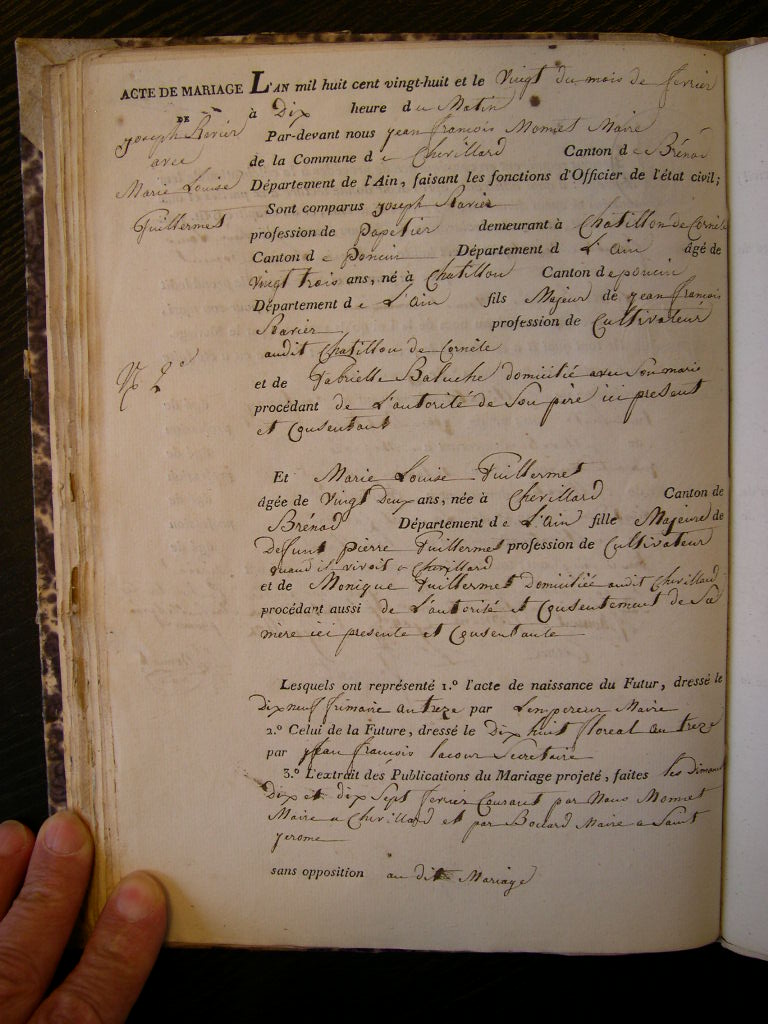 ACTE DE MARIAGE
DE
joseph Ravier
avec
Marie Louise
Guillermet
No 2e
L'AN mil huit cent vingt-huit et le Vingt du mois de fevrier
à Dix heure du Matin
Par-devant nous jean francois Monnet Maire
de la Commune de Chevillard Canton de Brénod
Département de l'Ain, faisant les fonctions d'Officier de l'état civil;
Sont comparus joseph Ravier
profession de Papetier demeurant à Chatillon de Cornèle
Canton de Poncin Département d L'Ain âgé de
Vingt trois ans, né à Chatillon Canton de poncin
Département de L'Ain fils Majeur de jean francois
Ravier profession de Cultivateur
audit Chatillon de Cornèle
et de Gabrielle Baluche domicilié avec Son maris
procédant de L'autorité de Son père ici present
et Consentant
Et Marie Louise Guillermet
âgée de Vingt Deux ans, née à Chevillard Canton de
Brénod Département de L'Ain fille Majeure de
Defunt pierre Guillermet profession de Cultivateur
quand il vivoit a Chevillard
et de Monique Guillermet domiciliée audit Chevillard
procédant aussi de L'autorité et Consentement de Sa
mère ici presente et Consentante
Lesquels ont représenté 1.º l'acte de naissance du Futur, dressé le
Dix neuf frimaire an treze par Lempereur Maire
2.º Celui de la Future, dressé le Dix huit floreal an treze
par jean francois lacour Secretaire
3.º L'extrait des Publications du Mariage projeté, faites les Dimanches
Dix et dix Sept fevrier Courant par Nous Monnet
Maire a Chevillard et par Maire a Saint
jerome
sans opposition au dit Mariage